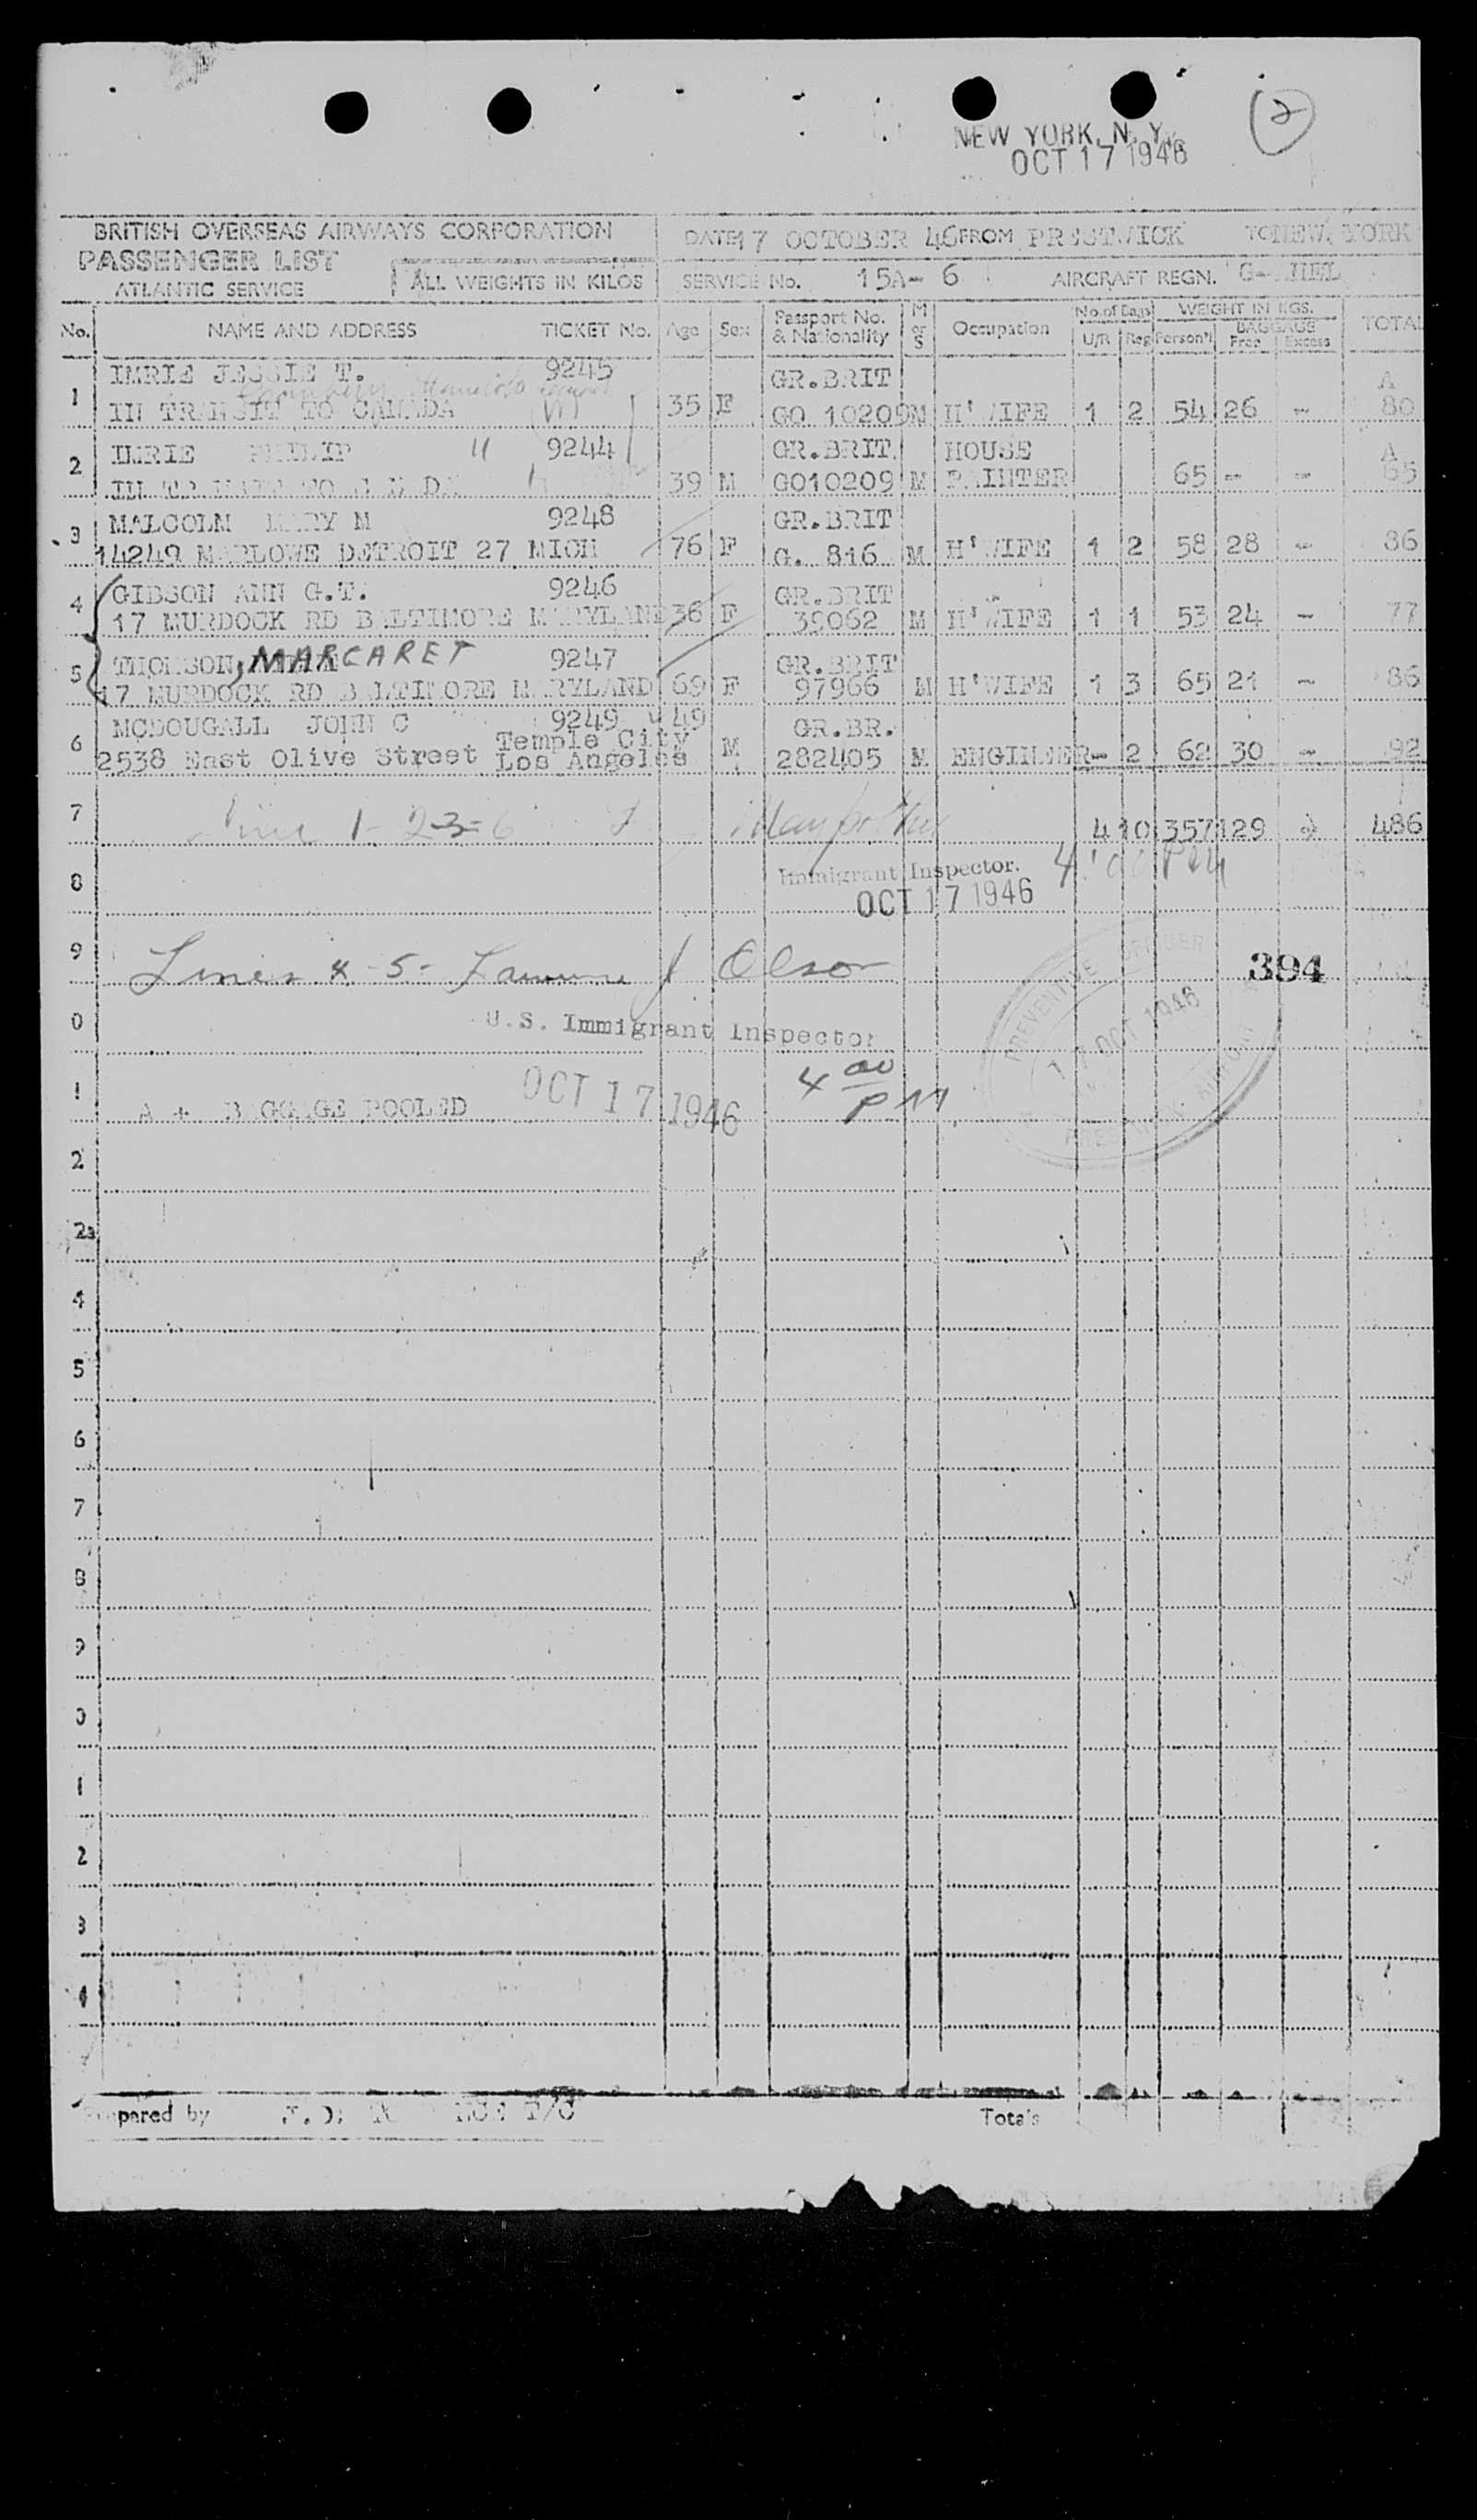 2
NEW YORK, N. Y.
OCT 17 1946
BRITISH OVERSEAS AIRWAYS CORPORATION
PASSENGER LIST
ATLANTIC SERVICE
ALL WEIGHTS IN KILOS
DATE 17 OCTOBER 46 FROM PRESTWICK TO NEW YORK
SERVICE No. 15A-6 AIRCRAFT REGN. G-
No. NAME AND ADDRESS TICKET No. Age Sex Passport No. & Nationality M or S Occupation No. of Bags U/R Reg WEIGHT IN KGS. Person'l BAGGAGE Free Excess TOTAL
1 IMRIE JESSIE T. 9245 GR.BRIT A
IN TRANSIT TO CANADA 35 F GO 10209 M H'WIFE 1 2 54 26 - 80
2 IMRIE PHILIP 9244 GR.BRIT. HOUSE A
IN TRANSIT TO CANADA 39 M GO10209 M PAINTER 65 - - 65
3 MALCOLM MARY M 9248 GR.BRIT
14249 MARLOWE DETROIT 27 MICH 76 F G. 816 M H'WIFE 1 2 58 28 - 86
4 GIBSON ANN G.T. 9246 GR.BRIT
17 MURDOCK RD BALTIMORE MARYLAND 36 F 39062 M H'WIFE 1 1 53 24 - 77
5 THOMSON, MARGARET 9247 GR.BRIT
17 MURDOCK RD BALTIMORE MARYLAND 69 F 97966 M H'WIFE 1 3 65 21 - 86
6 MCDOUGALL JOHN C 9249 49 GR.BR.
2538 East Olive Street Temple City Los Angeles M 282405 M ENGINEER - 2 62 30 - 92
7 Line 1-2-3-6 4 10 357 129 486
8 Immigrant Inspector. 4:00 PM
OCT 17 1946
9 Lines 4-5- J Olson 394
0 U.S. Immigrant Inspector
PREVENTIVE OFFICER
17 OCT 1946
PRESTWICK AIRPORT
1 A + BAGGAGE POOLED OCT 17 1946 4 00 PM
2
2a
4
5
6
7
8
9
0
1
2
3
4
Prepared by T/C Totals